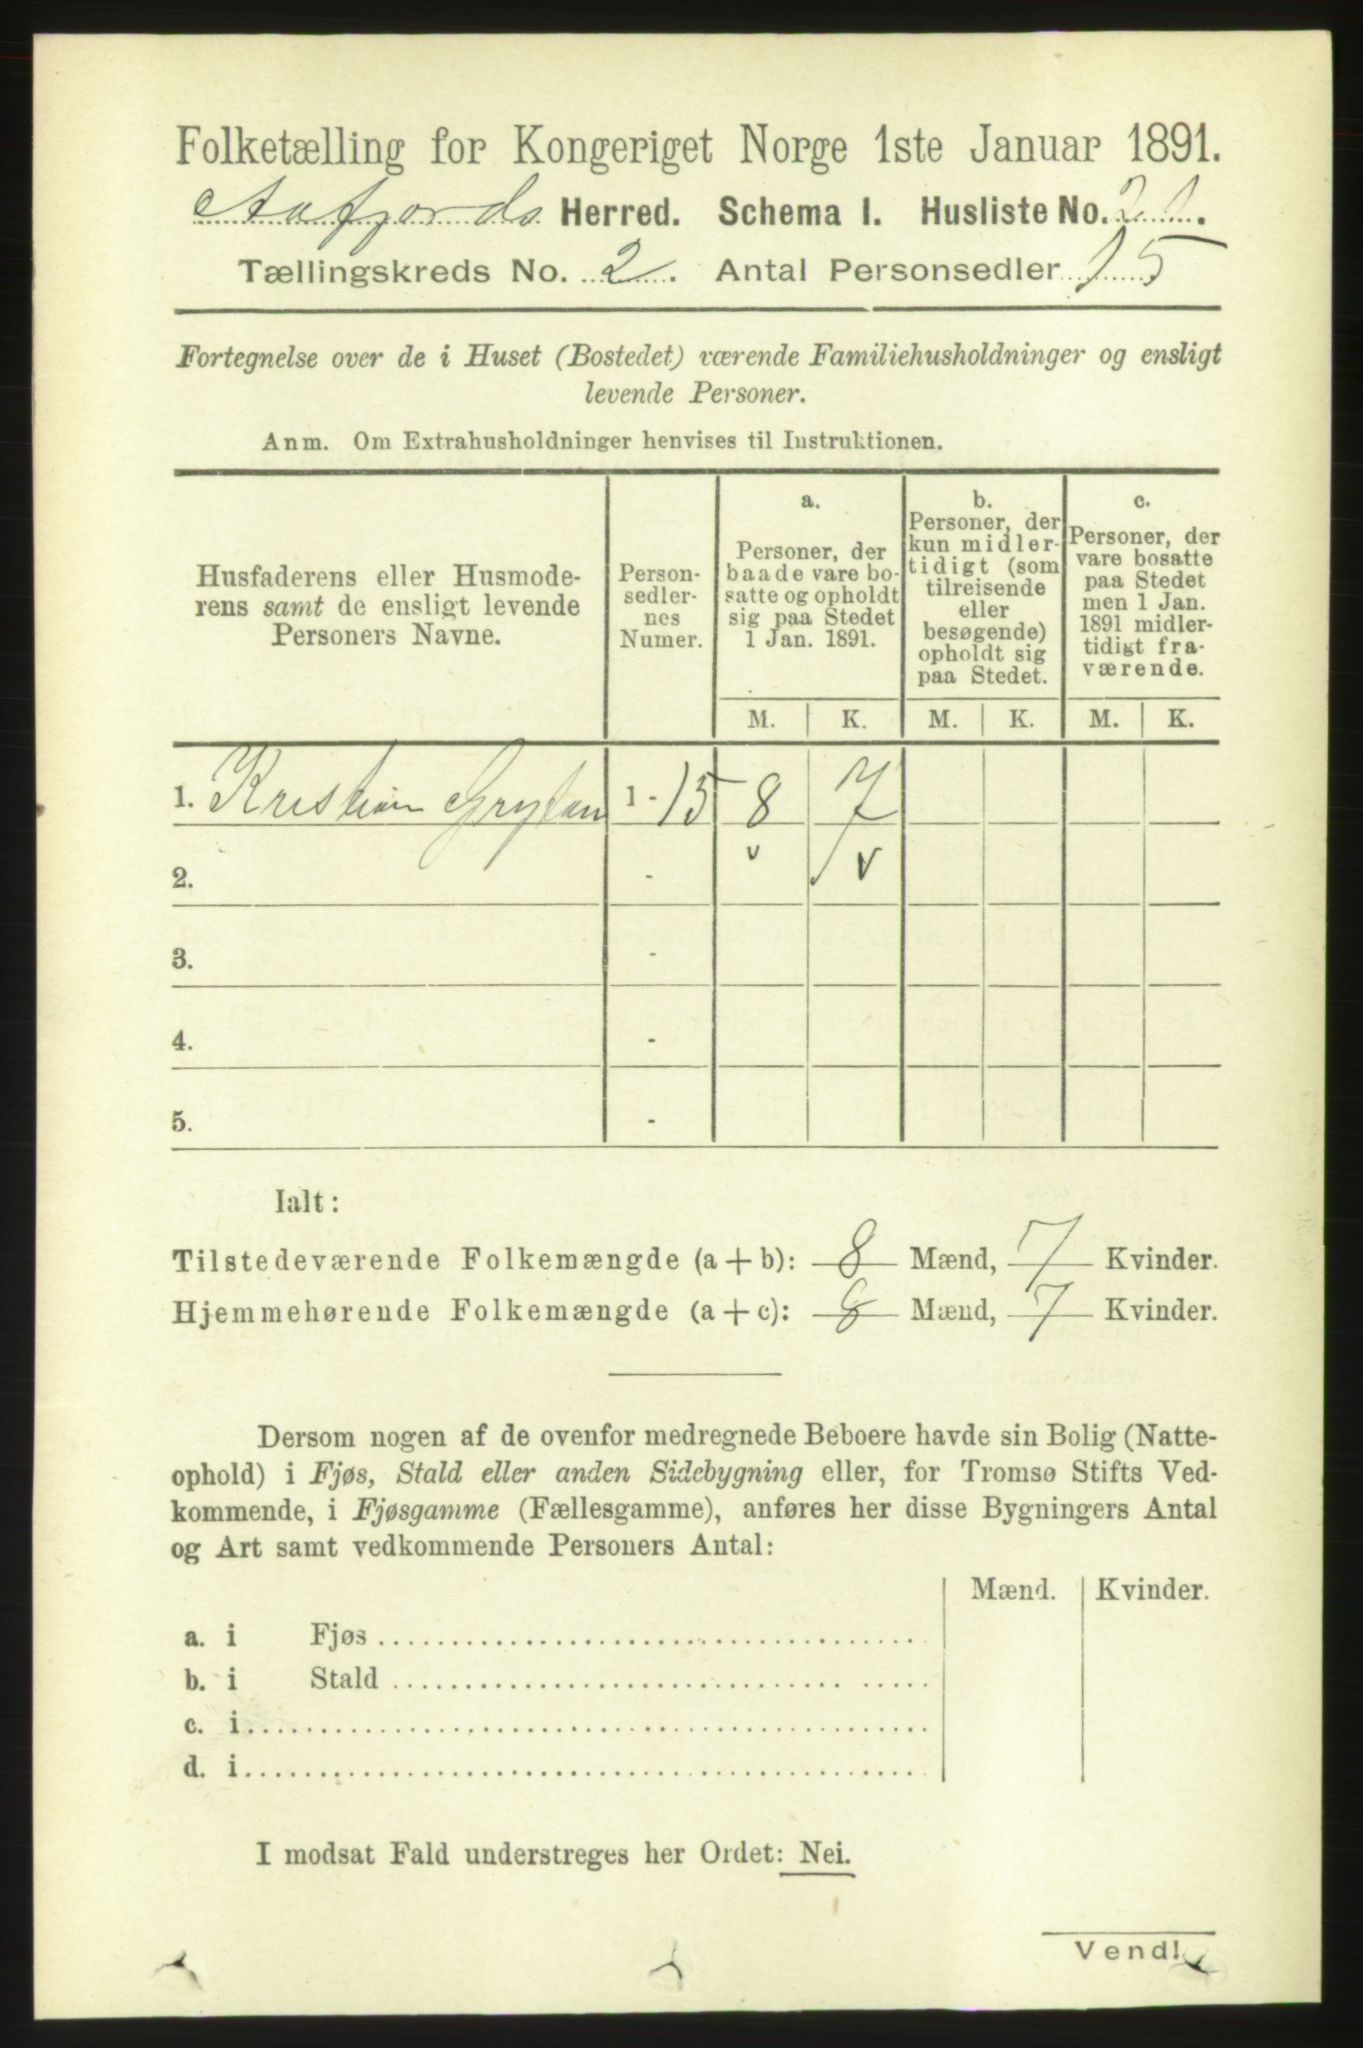 Folketælling for Kongeriget Norge 1ste Januar 1891.
Aafjords Herred. Schema I. Husliste No. 21.
Tællingskreds No. 2. Antal Personsedler 15
Fortegnelse over de i Huset (Bostedet) værende Familiehusholdninger og ensligt
levende Personer.
Anm. Om Extrahusholdninger henvises til Instruktionen.
Husfaderens eller Husmode-
rens samt de ensligt levende
Personers Navne.
Person-
sedler-
nes
Numer.
a.
Personer, der
baade vare bo-
satte og opholdt
sig paa Stedet
1 Jan. 1891.
b.
Personer, der
kun midler-
tidigt (som
tilreisende
eller
besøgende)
opholdt sig
paa Stedet.
c.
Personer, der
vare bosatte
paa Stedet
men 1 Jan.
1891 midler-
tidigt fra-
værende.
M. K. M. K. M. K.
1. Kristian 1 - 15 8 7
2. - v v
3. -
4. -
5. -
Ialt:
Tilstedeværende Folkemængde (a + b): 8 Mænd, 7 Kvinder.
Hjemmehørende Folkemængde (a + c): 8 Mænd, 7 Kvinder.
Dersom nogen af de ovenfor medregnede Beboere havde sin Bolig (Natte-
ophold) i Fjøs, Stald eller anden Sidebygning eller, for Tromsø Stifts Ved-
kommende, i Fjøsgamme (Fællesgamme), anføres her disse Bygningers Antal
og Art samt vedkommende Personers Antal:
Mænd. Kvinder.
a. i Fjøs
b. i Stald
c. i
d. i
I modsat Fald understreges her Ordet: Nei.
Vend!